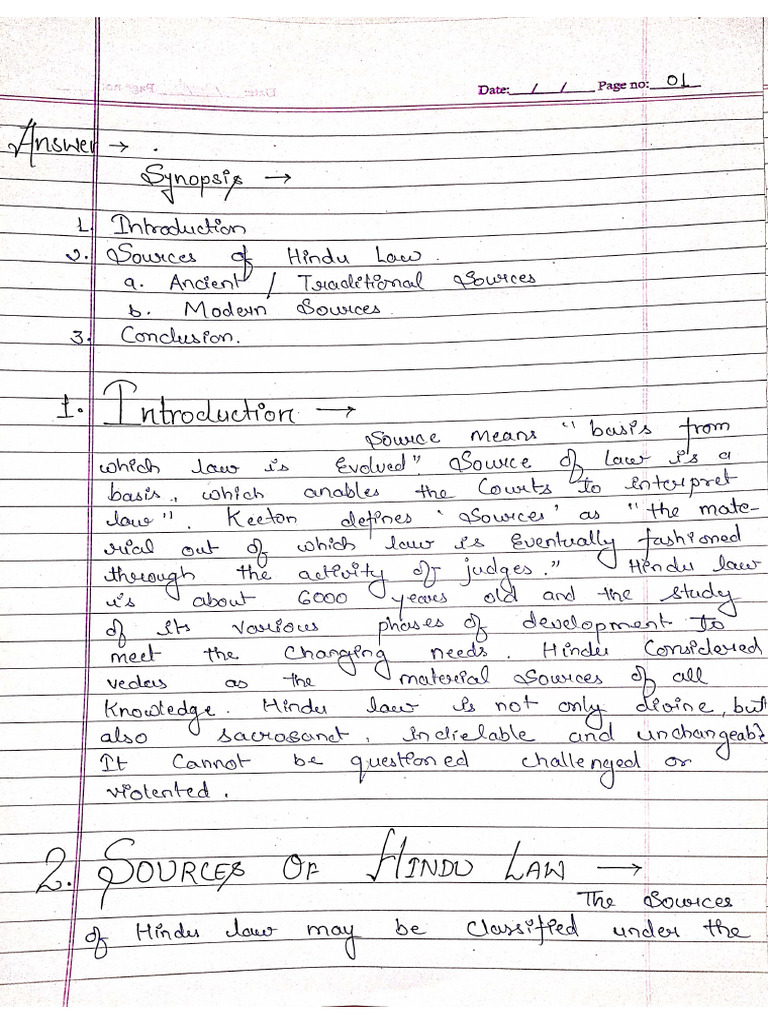 Date: / / Page no: 01
Answer → .
Synopsis →
1. Introduction
2. Sources of Hindu Law.
a. Ancient / Traditional Sources
b. Modern Sources.
3. Conclusion.
1. Introduction →
Source means "basis from
which law is Evolved" Source of Law is a
basis, which anables the Courts to interpret
law". Keeton defines 'Sources' as "the mate-
rial out of which law is Eventually fashioned
through the activity of judges." Hindu law
is about 6000 years old and the study
of its various phases of development to
meet the Changing needs. Hindu Considered
vedas as the material Sources of all
Knowledge. Hindu law is not only divine, but
also sacrosanct, indielable and unchangeabl
It Cannot be questioned challenged or
violented.
2. Sources of Hindu Law →
The Sources
of Hindu law may be Classified under the